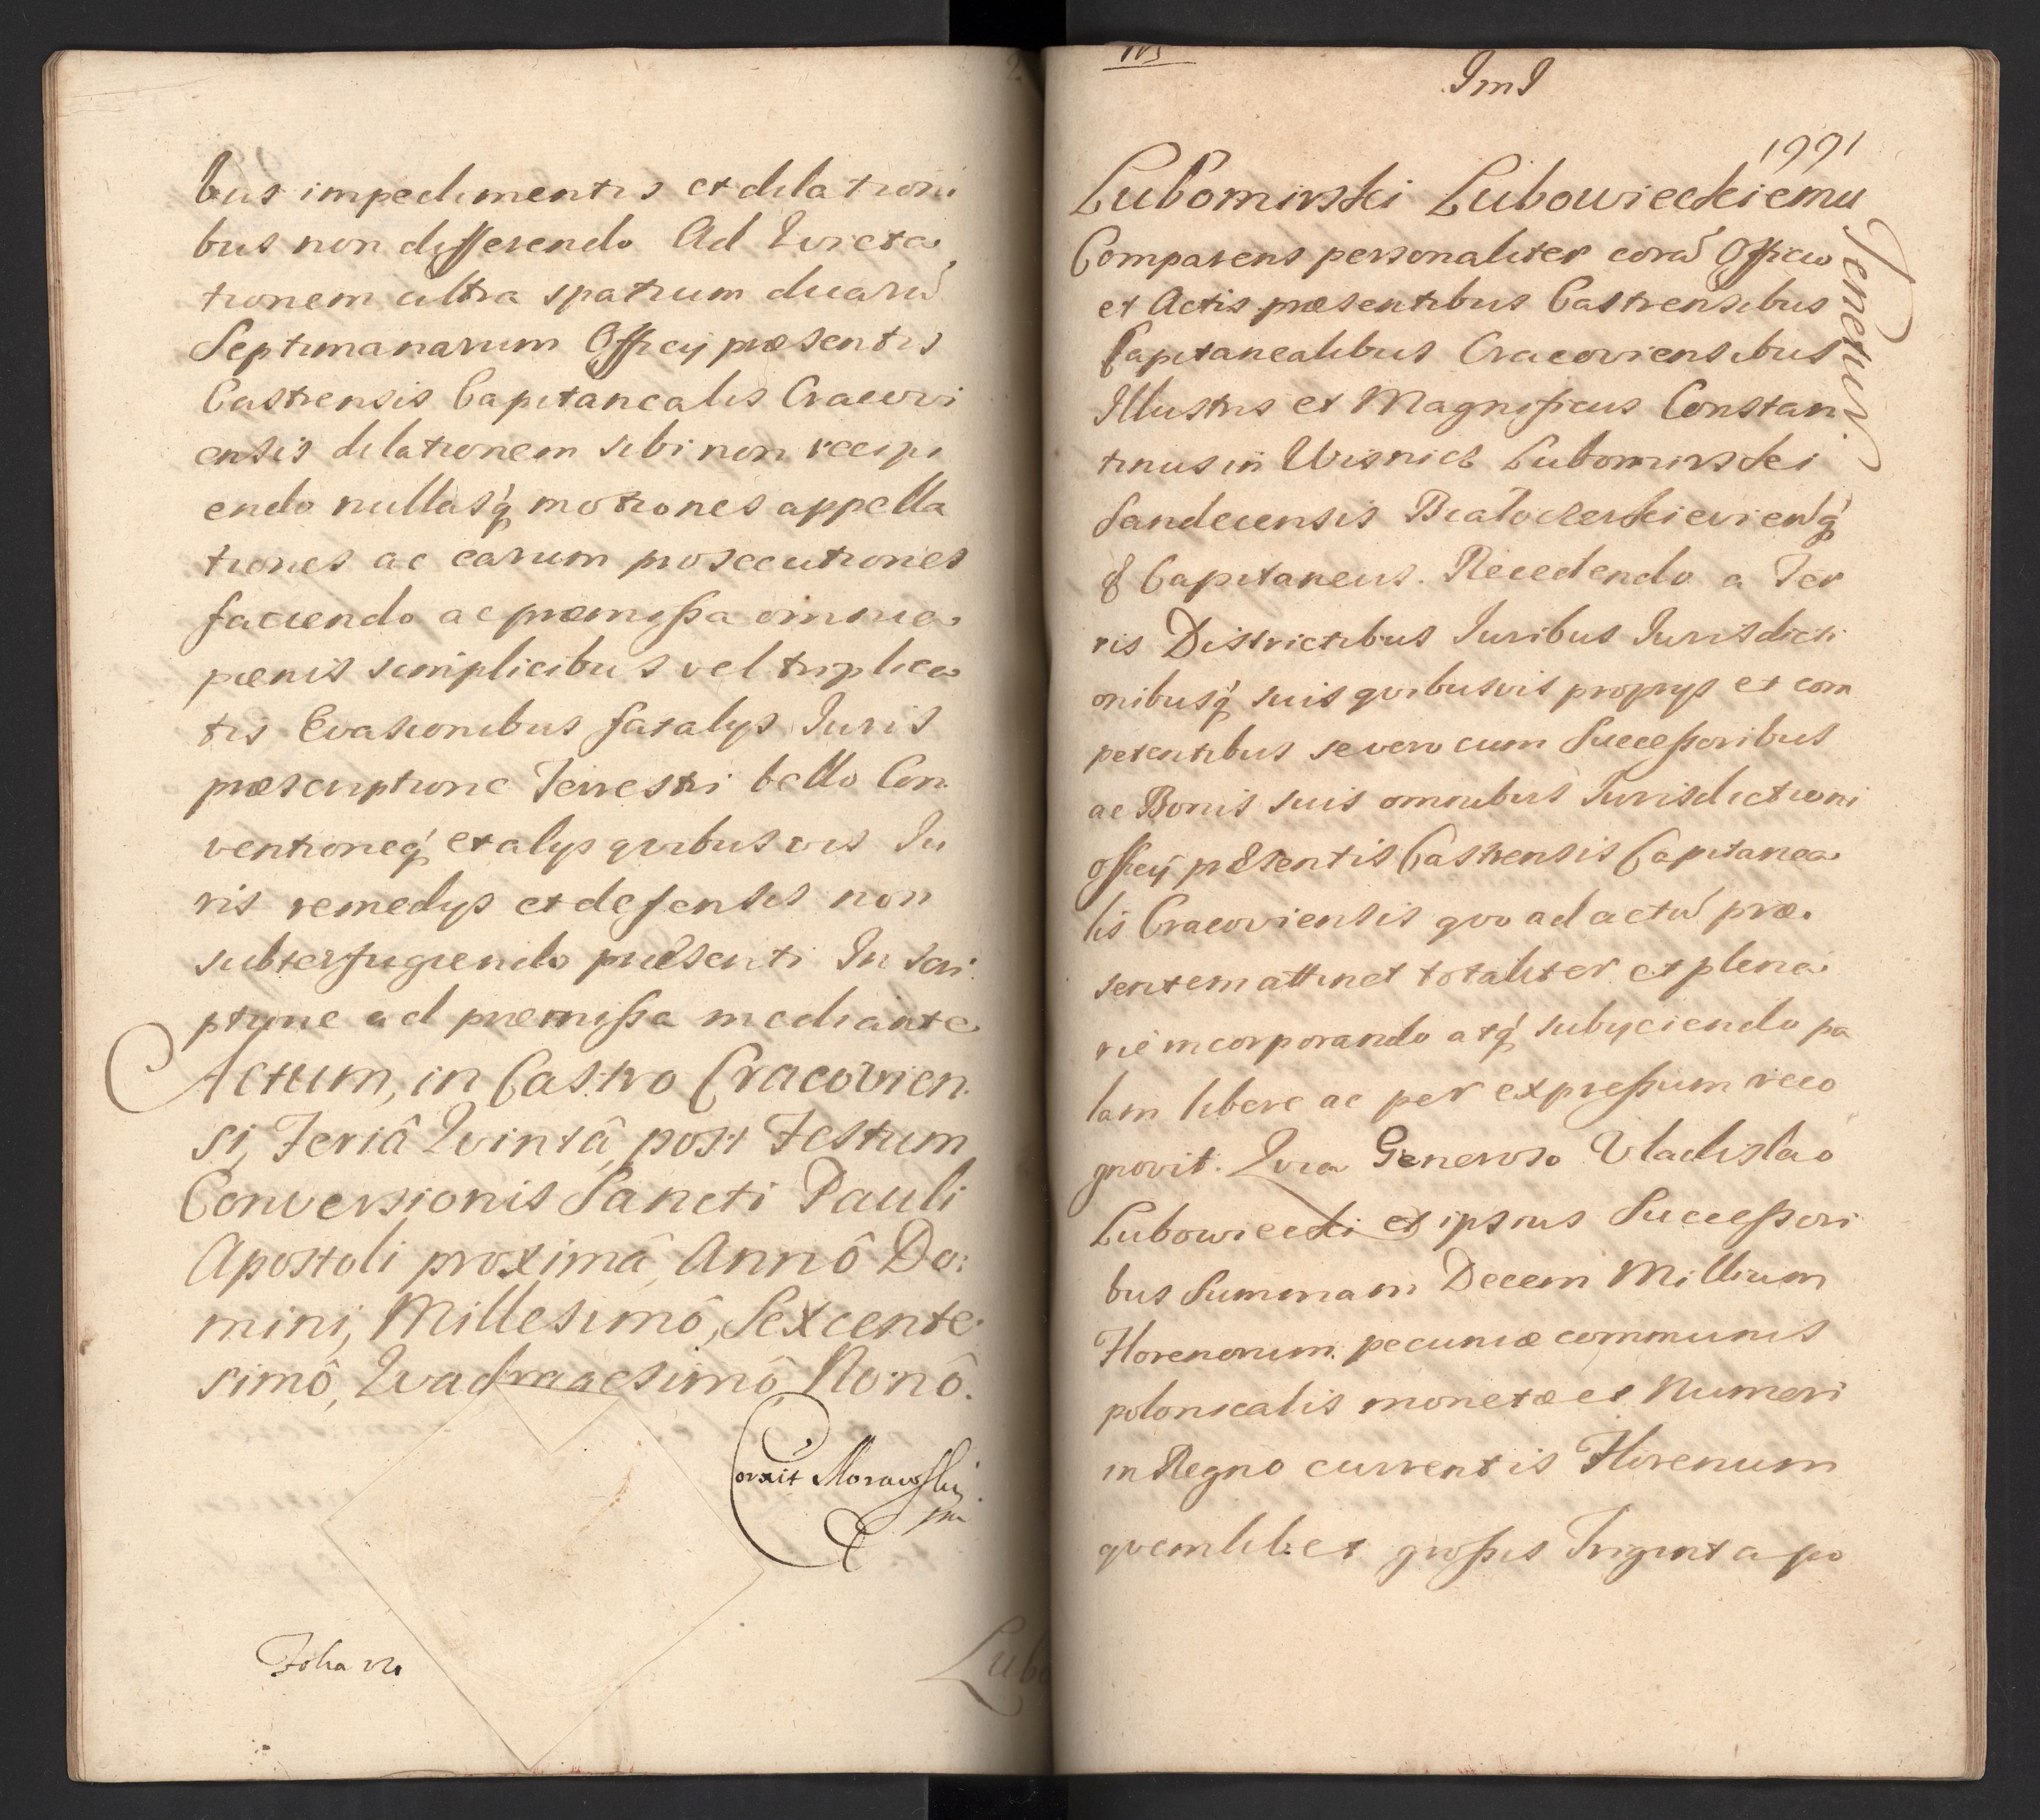 bus impedimentis et dilationi
bus non differendo Ad Evicta
tionem ultra spatium duarū
Septimanarum Officij præsentis
Castrensis Capitanealis Cracovi
ensis dilationem sibi non recipi
endo nullasq́ motiones appella
tiones ac earum prosecutiones
faciendo ac præmißa omnia
pœnis simplicibus vel triplica
tis Evasionibus fatalys Iuris
præscriptione Terrestri bello Con
ventioneq́ et alys qvibusvis Iu
ris remedys et defensis non
subterfugiendo præsenti Inscri
ptione ad præmißa mediante
Actum, in Castro Cracovien
si, Feriâ Qvintâ post Festum
Conversionis Sancti Pauli
Apostoli proximâ, Annô Do:
mini, Millesimô, Sexcente
simô, Qvadragesimô Nonô.
Corxit Morawski
mp
Folia
Lubo
ImI
1991
Lubomirski Lubowieckiemu
Tenetur
Comparens personaliter corā Officio
et Actis præsentibus Castrensibus
Capitanealibus Cracoviensibus
Illustris et Magnificus Constan
tinus in Wisnicz Lubomirski
Sandecensis Białocerkievienq́
& Capitaneus. Recedendo a Ter
ris Districtibus Iuribus Iurisdicti
onibusq́ suis qvibusvis proprys et com
petentibus se vero cum Succeßoribus
ac Bonis suis omnibus Iurisdictioni
Officij præsentis Castrensis Capitanea
lis Cracoviensis qvo ad actū præ
sentem attinet totaliter et plena
rie incorporando atq́ subyciendo pa
lam libere ac per expreßum reco
gnovit. Qvia Generoso Vladislao
Lubowiecki et ipsius Succeßori
bus Summam Decem Millium
Florenorum pecuniæ communis
polonicalis monetæ et Numeri
in Regno currentis Florenum
qvemlibet großis Triginta po